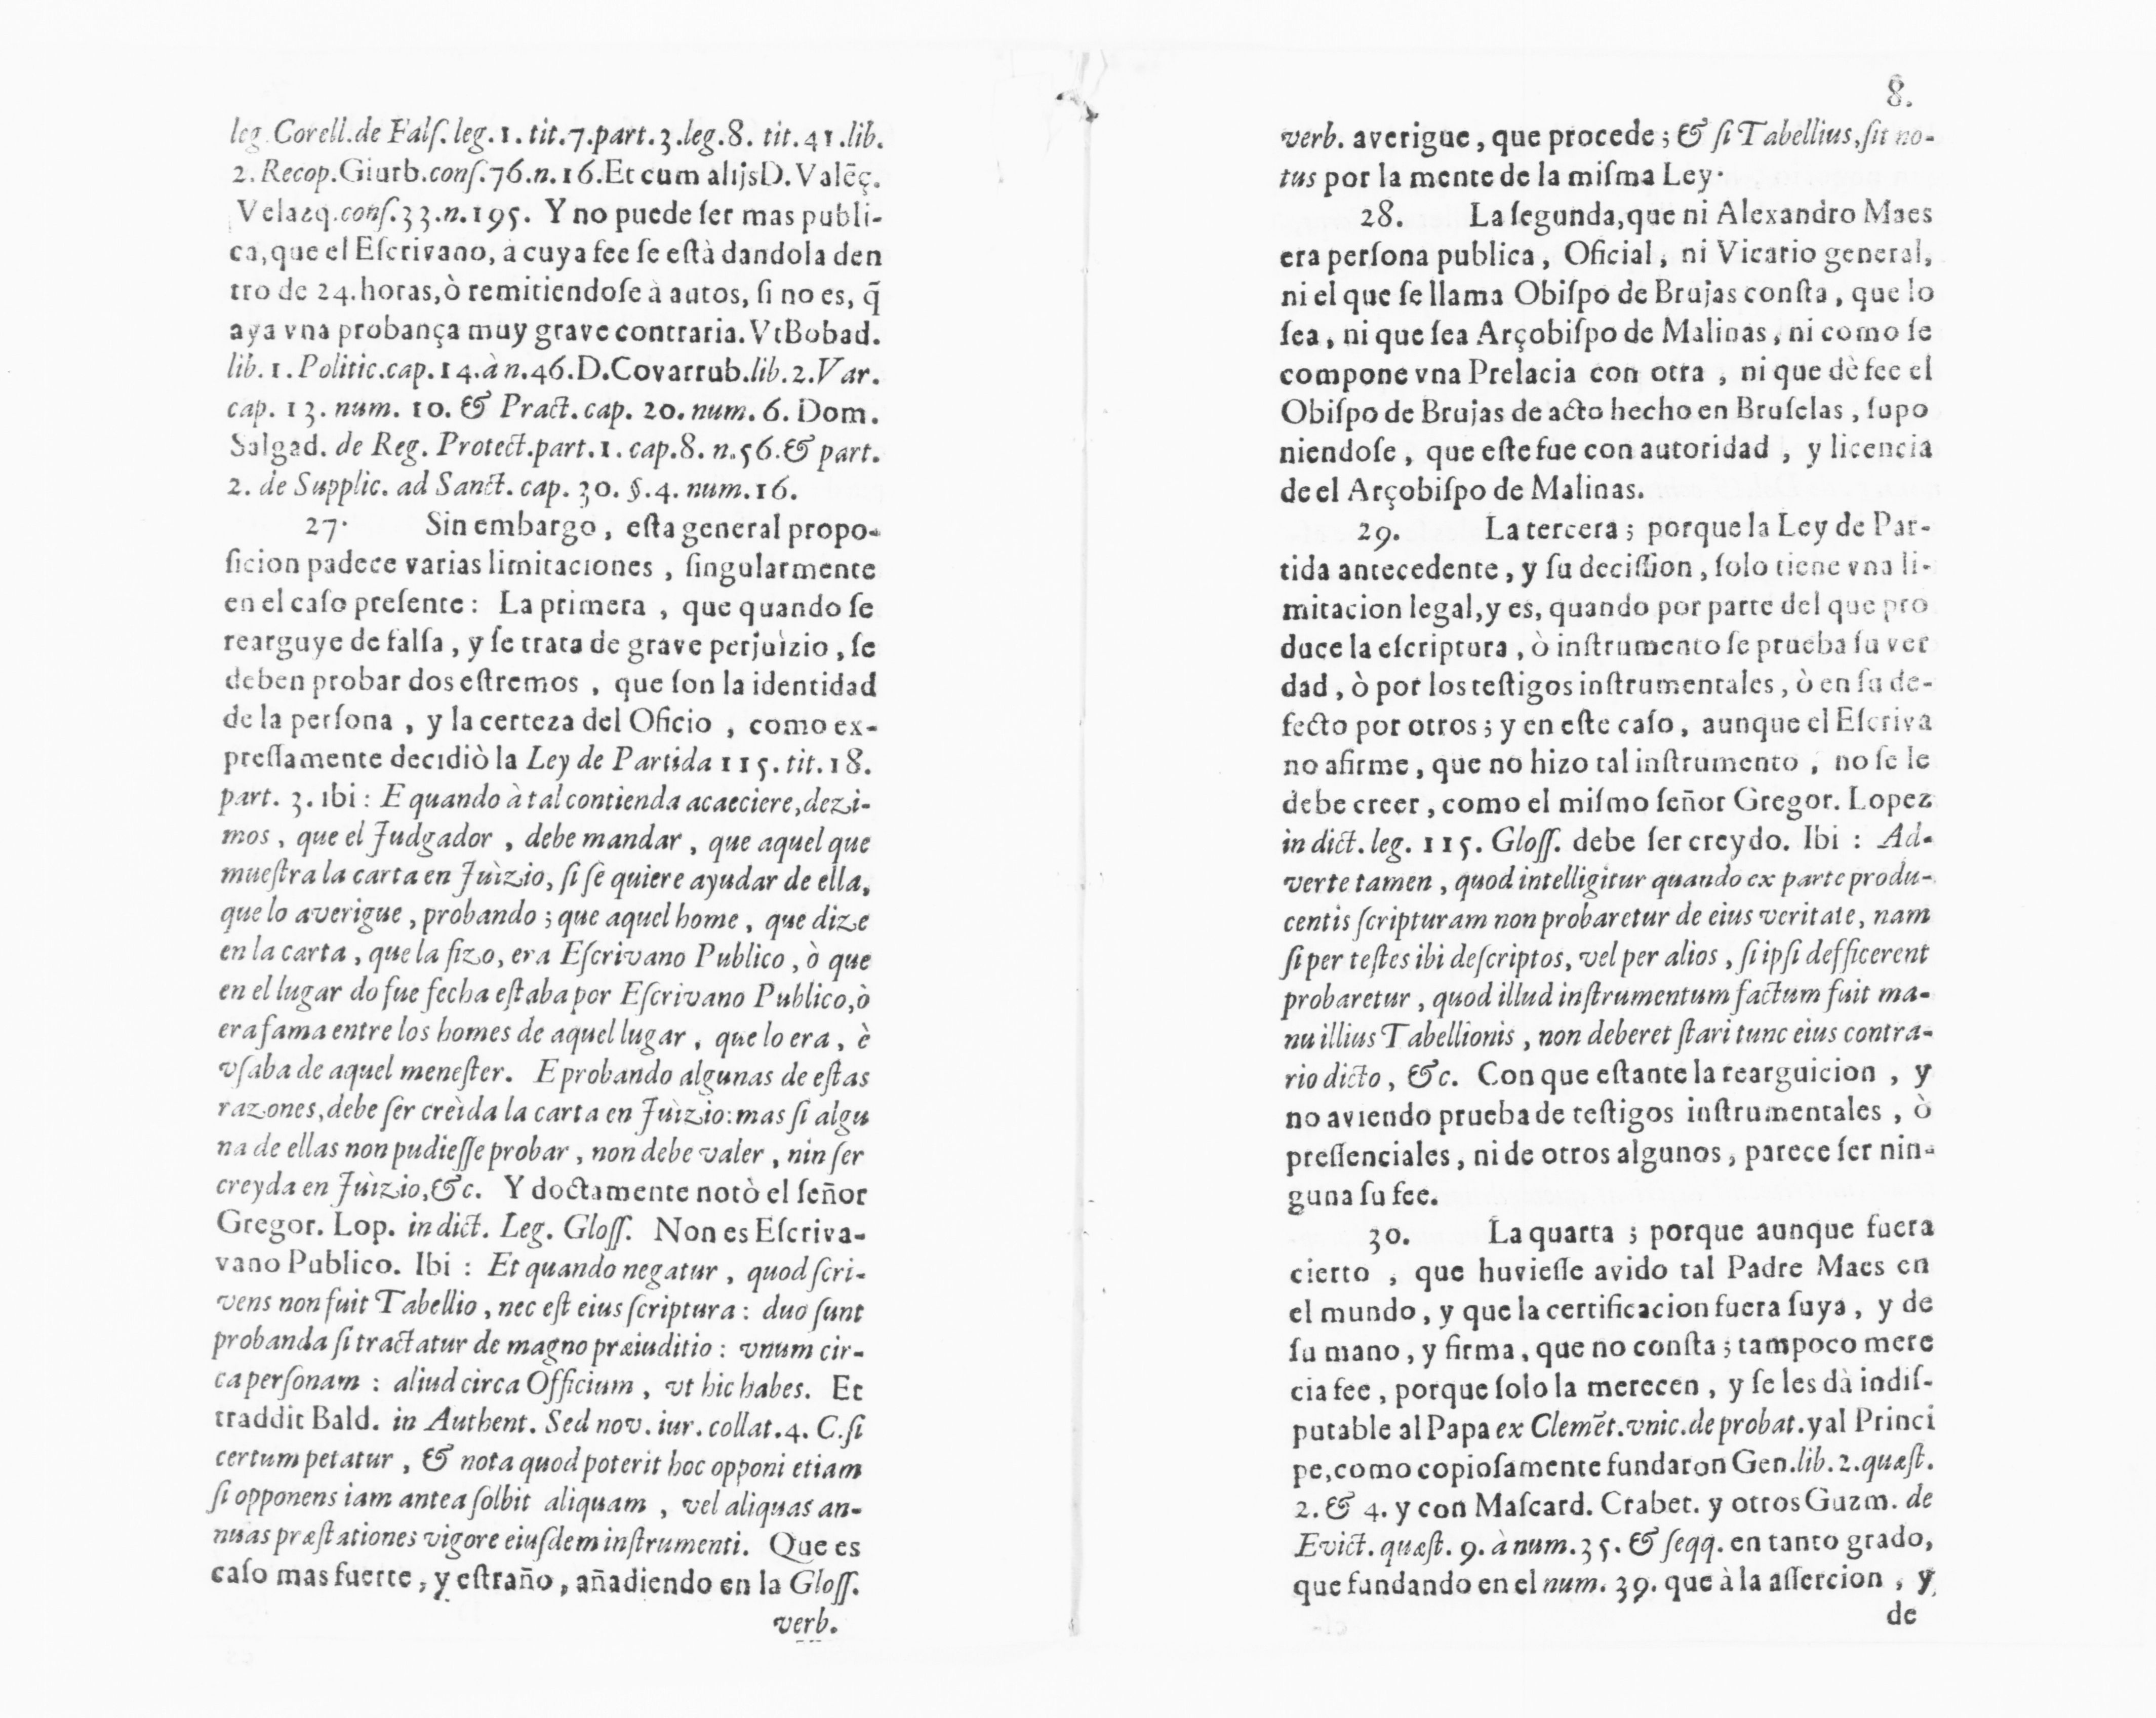 leg. Corell.de Falſ. leg. 1. tit. 7. part. 3. leg. 8. tit. 41. lib.
2. Recop. Giurb. conſ. 76. n. 16. Et cum alijs D. Valēç.
Velazq. conſ. 33. n. 195. Y no puede ſer mas publi-
ca, que el Eſcrivano, à cuya fee ſe eſtà dandola den
tro de 24. horas, ò remitiendoſe à autos, ſi no es, q̃
aya vna probança muy grave contraria. Vt Bobad.
lib. 1. Politic. cap. 14. à n. 46. D. Covarrub. lib. 2. Var.
cap. 13. num. 10. & Pract. cap. 20. num. 6. Dom.
Salgad. de Reg. Protect. part. 1. cap. 8. n. 56. & part.
2. de Supplic. ad Sanct. cap. 30. §. 4. num. 16.
27. Sin embargo, eſta general propo-
ſicion padece varias limitaciones, ſingularmente
en el caſo preſente: La primera, que quando ſe
rearguye de falſa, y ſe trata de grave perjuìzio, ſe
deben probar dos eſtremos, que ſon la identidad
de la perſona, y la certeza del Oficio, como ex-
preſſamente decidiò la Ley de Partida 115. tit. 18.
part. 3. ibi: E quando à tal contienda acaeciere, dezi-
mos, que el Judgador, debe mandar, que aquel que
mueſtra la carta en Juìzio, ſi ſe quiere ayudar de ella,
que lo averigue, probando; que aquel home, que dize
en la carta, que la fizo, era Eſcrivano Publico, ò que
en el lugar do fue fecha eſtaba por Eſcrivano Publico, ò
era fama entre los homes de aquel lugar, que lo era, è
vſaba de aquel meneſter. E probando algunas de eſtas
razones, debe ſer creìda la carta en Juìzio: mas ſi algu
na de ellas non pudieſſe probar, non debe valer, nin ſer
creyda en Juìzio, &c. Y doctamente notò el ſeñor
Gregor. Lop. in dict. Leg. Gloſſ. Non es Eſcriva-
vano Publico. Ibi: Et quando negatur, quod ſcri-
vens non fuit Tabellio, nec eſt eius ſcriptura: duo ſunt
probanda ſi tractatur de magno præiuditio: vnum cir-
ca perſonam: aliud circa Officium, vt hic habes. Et
traddit Bald. in Authent. Sed nov. iur. collat. 4. C. ſi
certum petatur, & nota quod poterit hoc opponi etiam
ſi opponens iam antea ſolbit aliquam, vel aliquas an-
nuas præſtationes vigore eiuſdem inſtrumenti. Que es
caſo mas fuerte, y eſtraño, añadiendo en la Gloſſ.
verb.
8.
verb. averigue, que procede; & ſi Tabellius, ſit no-
tus por la mente de la miſma Ley.
28. La ſegunda, que ni Alexandro Maes
era perſona publica, Oficial, ni Vicario general,
ni el que ſe llama Obiſpo de Brujas conſta, que lo
ſea, ni que ſea Arçobiſpo de Malinas, ni como ſe
compone vna Prelacia con otra, ni que dè fee el
Obiſpo de Brujas de acto hecho en Bruſelas, ſupo
niendoſe, que eſte fue con autoridad, y licencia
de el Arçobiſpo de Malinas.
29. La tercera; porque la Ley de Par-
tida antecedente, y ſu deciſſion, ſolo tiene vna li-
mitacion legal, y es, quando por parte del que pro
duce la eſcriptura, ò inſtrumento ſe prueba ſu ver
dad, ò por los teſtigos inſtrumentales, ò en ſu de-
fecto por otros; y en eſte caſo, aunque el Eſcriva
no afirme, que no hizo tal inſtrumento, no ſe le
debe creer, como el miſmo ſeñor Gregor. Lopez
in dict. leg. 115. Gloſſ. debe ſer creydo. Ibi: Ad-
verte tamen, quod intelligitur quando ex parte produ-
centis ſcripturam non probaretur de eius veritate, nam
ſi per teſtes ibi deſcriptos, vel per alios, ſi ipſi defficerent
probaretur, quod illud inſtrumentum factum fuit ma-
nu illius Tabellionis, non deberet ſtari tunc eius contra-
rio dicto, &c. Con que eſtante la rearguicion, y
no aviendo prueba de teſtigos inſtrumentales, ò
preſſenciales, ni de otros algunos, parece ſer nin-
guna ſu fee.
30. La quarta; porque aunque fuera
cierto, que huvieſſe avido tal Padre Maes en
el mundo, y que la certificacion fuera ſuya, y de
ſu mano, y firma, que no conſta; tampoco mere
cia fee, porque ſolo la merecen, y ſe les dà indiſ-
putable al Papa ex Clemēt. vnic. de probat. y al Princi
pe, como copioſamente fundaron Gen. lib. 2. quæſt.
2. & 4. y con Maſcard. Crabet. y otros Guzm. de
Evict. quæſt. 9. à num. 35. & ſeqq. en tanto grado,
que fundando en el num. 39. que à la aſſercion, y
de